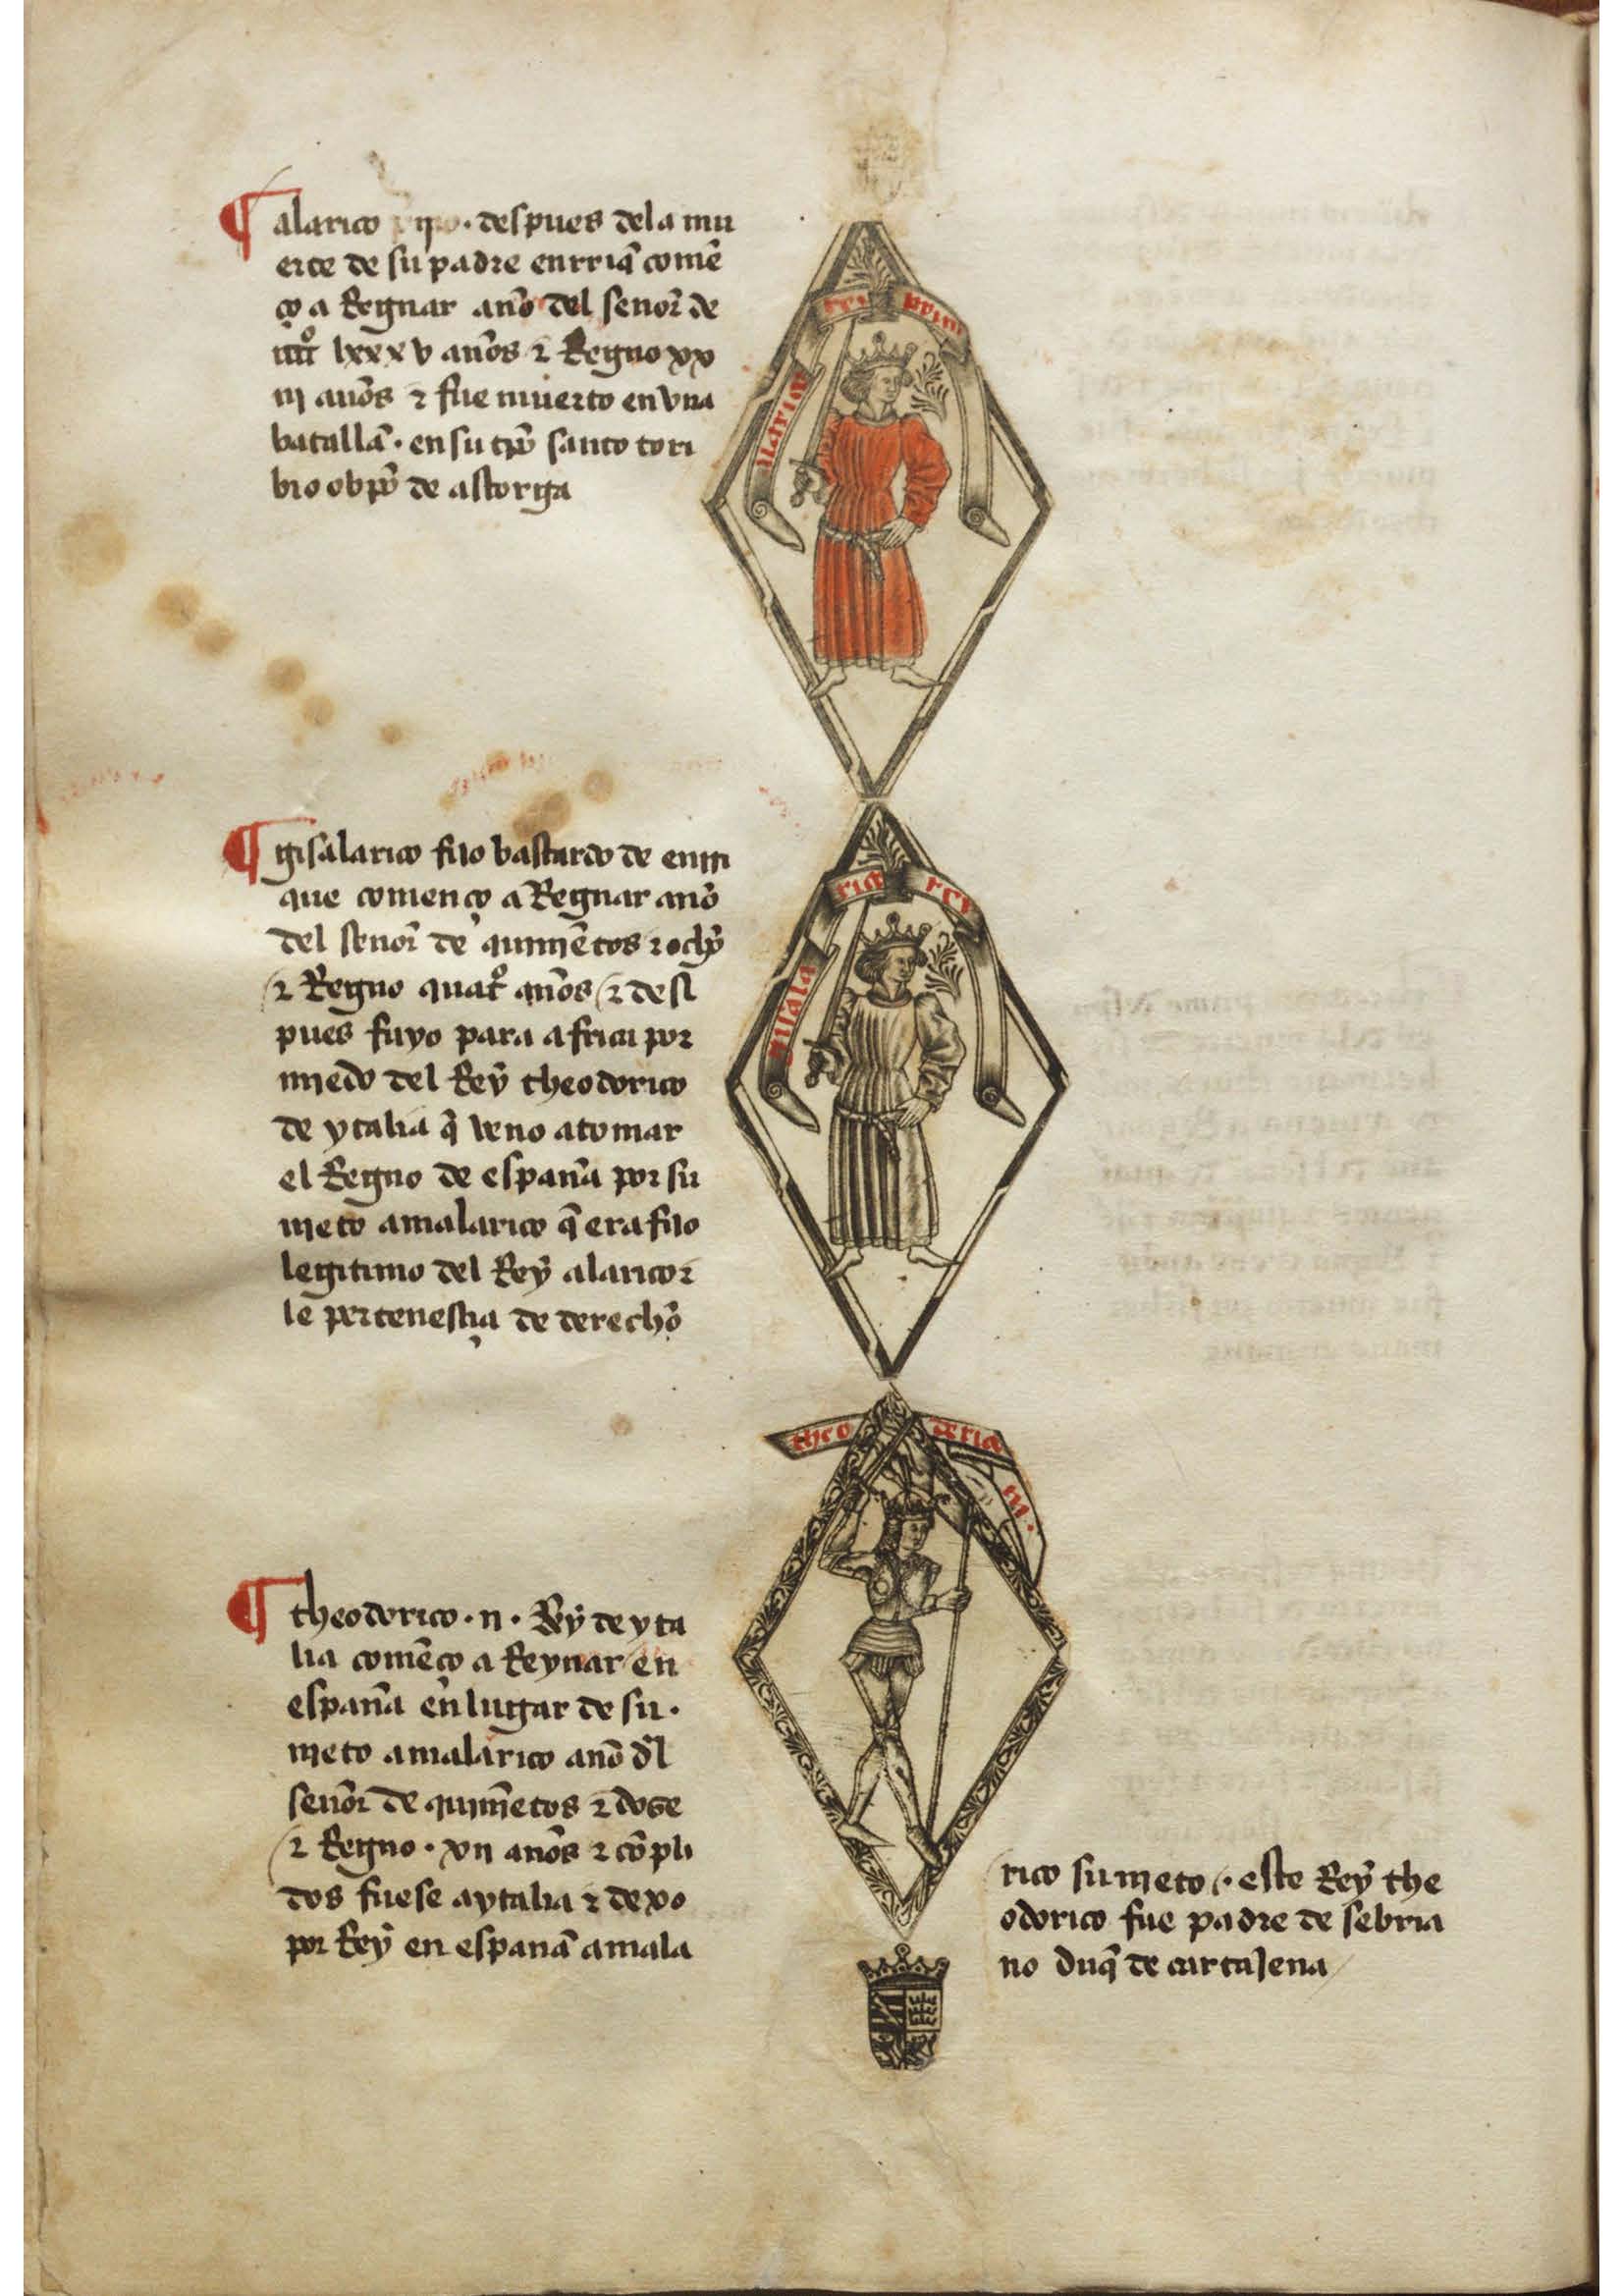 alarico · despues dela mu
erte de su padre enrriq̃ comẽ
ço a Regnar año del señor de
iiiiº lxxxv años ⁊ Regno xx
iij años ⁊ fue muerto en vna
batalla · en su tp̃o santo tori
bio obp̃o de astorga
alarico rey prim
gisalarico fijo bastardo de enrri
que començo a Regnar año
del señor de quiniẽtos ⁊ ocho
⁊ Regno quatº años ⁊ des
pues fuyo para africa por
miedo del Rey theodorico
de ytalia q̃ veno a tomar
el Regno de españa por su
nieto amalarico q̃ era fijo
legitimo del Rey alarico ⁊
le pertenesçia de derecho
gisala rico rey
theo derico
theodorico · ii · Rey de yta
lia comẽço a Reynar en
españa en lugar de su ·
nieto amalarico año dl
señor de quiniẽtos ⁊ dose
⁊ Regno · xii años ⁊ cõpli
dos fuese a ytalia ⁊ dexo
por Rey en españa amala
rico su nieto · este Rey the
odorico fue padre de sebria
no duq̃ de cartajena